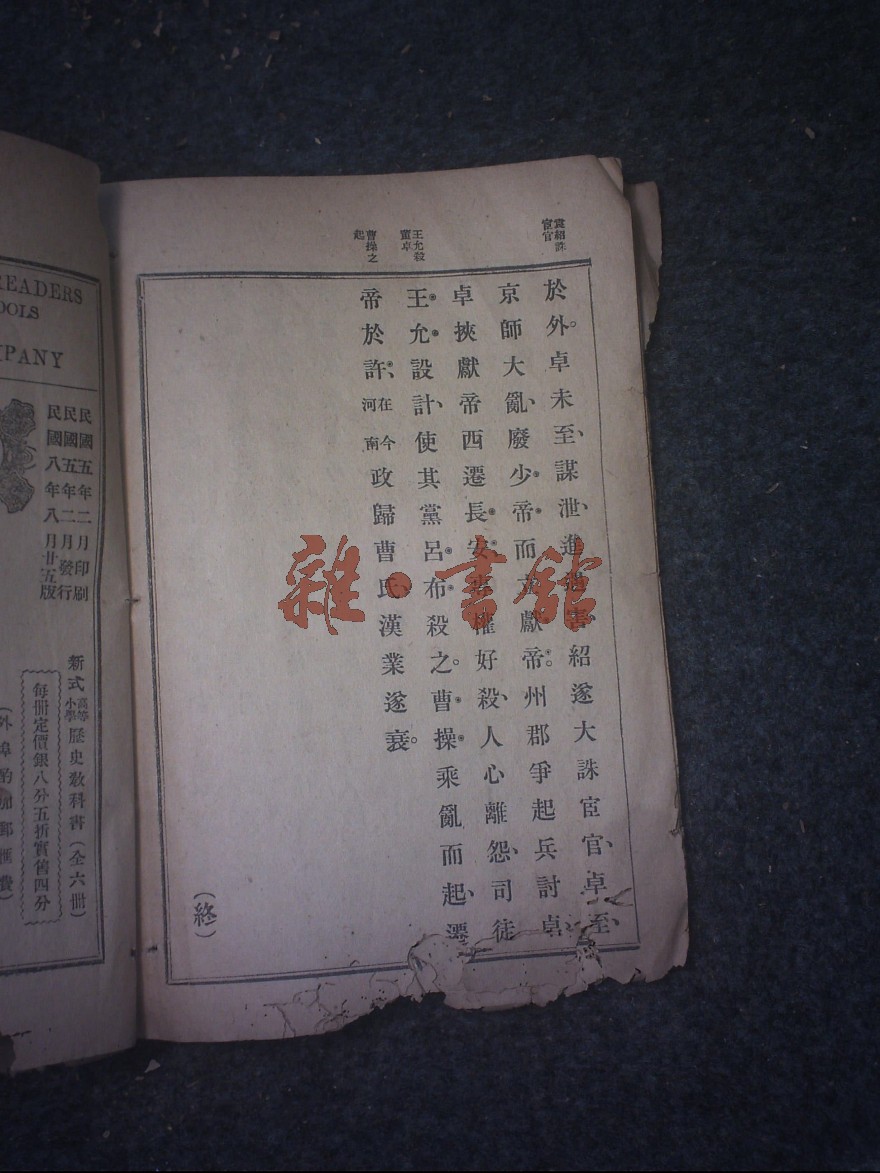 袁紹誅
宦官
王允殺
董卓
曹操之
起
於外。卓未至、謀泄、進遇害、紹遂大誅宦官、卓至、
京師大亂、廢少帝而立獻帝。州郡爭起兵討卓、
卓挾獻帝西遷長安、專權好殺、人心離怨、司徒
王允設計、使其黨呂布殺之。曹操乘亂而起、遷
帝於許、在今河南政歸曹氏、漢業遂衰。
(終)
雜·書館
READERS
OOLS
MPANY
民國五年二月印刷
民國五年二月發行
民國八年八月廿五版
新式高等小學歷史敎科書(全六冊)
每冊定價銀八分五折實售四分
(外埠酌加郵匯費)